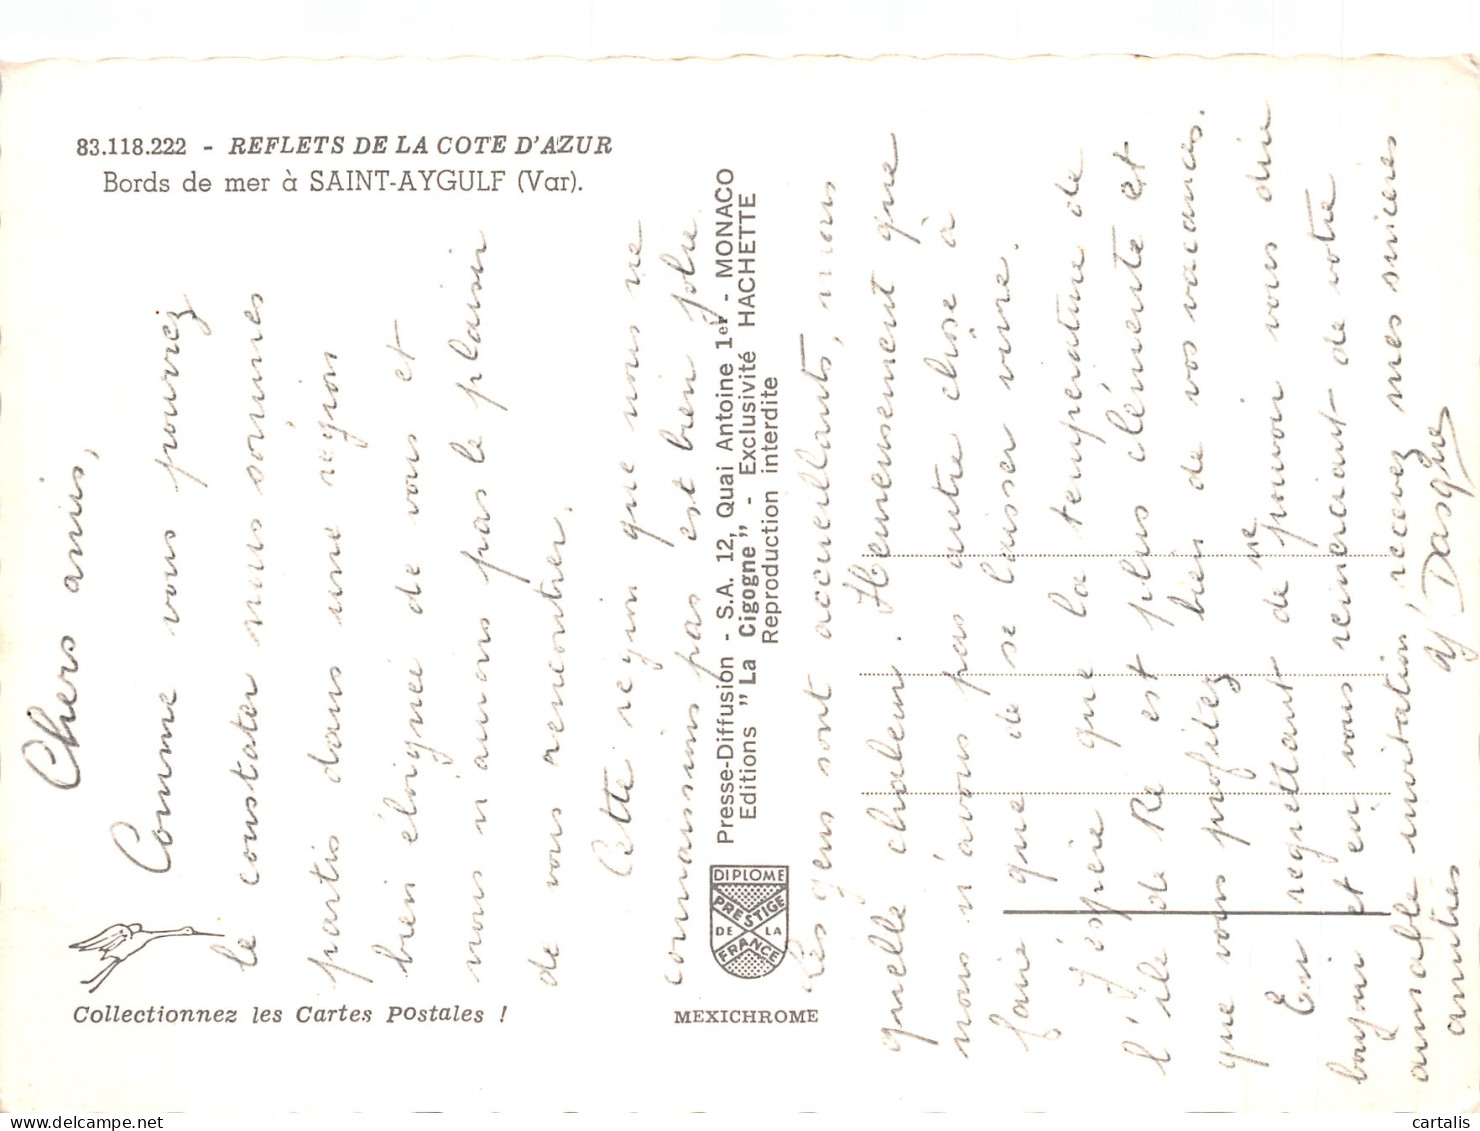 83.118.222 - REFLETS DE LA COTE D'AZUR
Bords de mer à SAINT-AYGULF (Var).
Chers amis,
Comme vous pourrez
le constater nous sommes
partis dans une région
bien éloignée de vous et
nous n'aurons pas le plaisir
de vous rencontrer.
Cette région que nous ne
connaissions pas est bien jolie
Les gens sont accueillants, mais
quelle chaleur. Heureusement que
nous n'avons pas autre chose à
faire que de se laisser vivre.
J'espère que la température de
l'île de Ré est plus clémente et
que vous profitez bien de vos vacances.
En regrettant de ne pouvoir vous dire
bonjour et en vous remerciant de votre
aimable invitation, recevez mes sincères
amitiés
Presse-Diffusion - S.A. 12, Quai Antoine 1er - MONACO
Editions "La Cigogne" - Exclusivité HACHETTE
Reproduction interdite
DIPLOME
PRESTIGE
DE LA
FRANCE
Collectionnez les Cartes Postales !
MEXICHROME
delcampe.net
cartalis